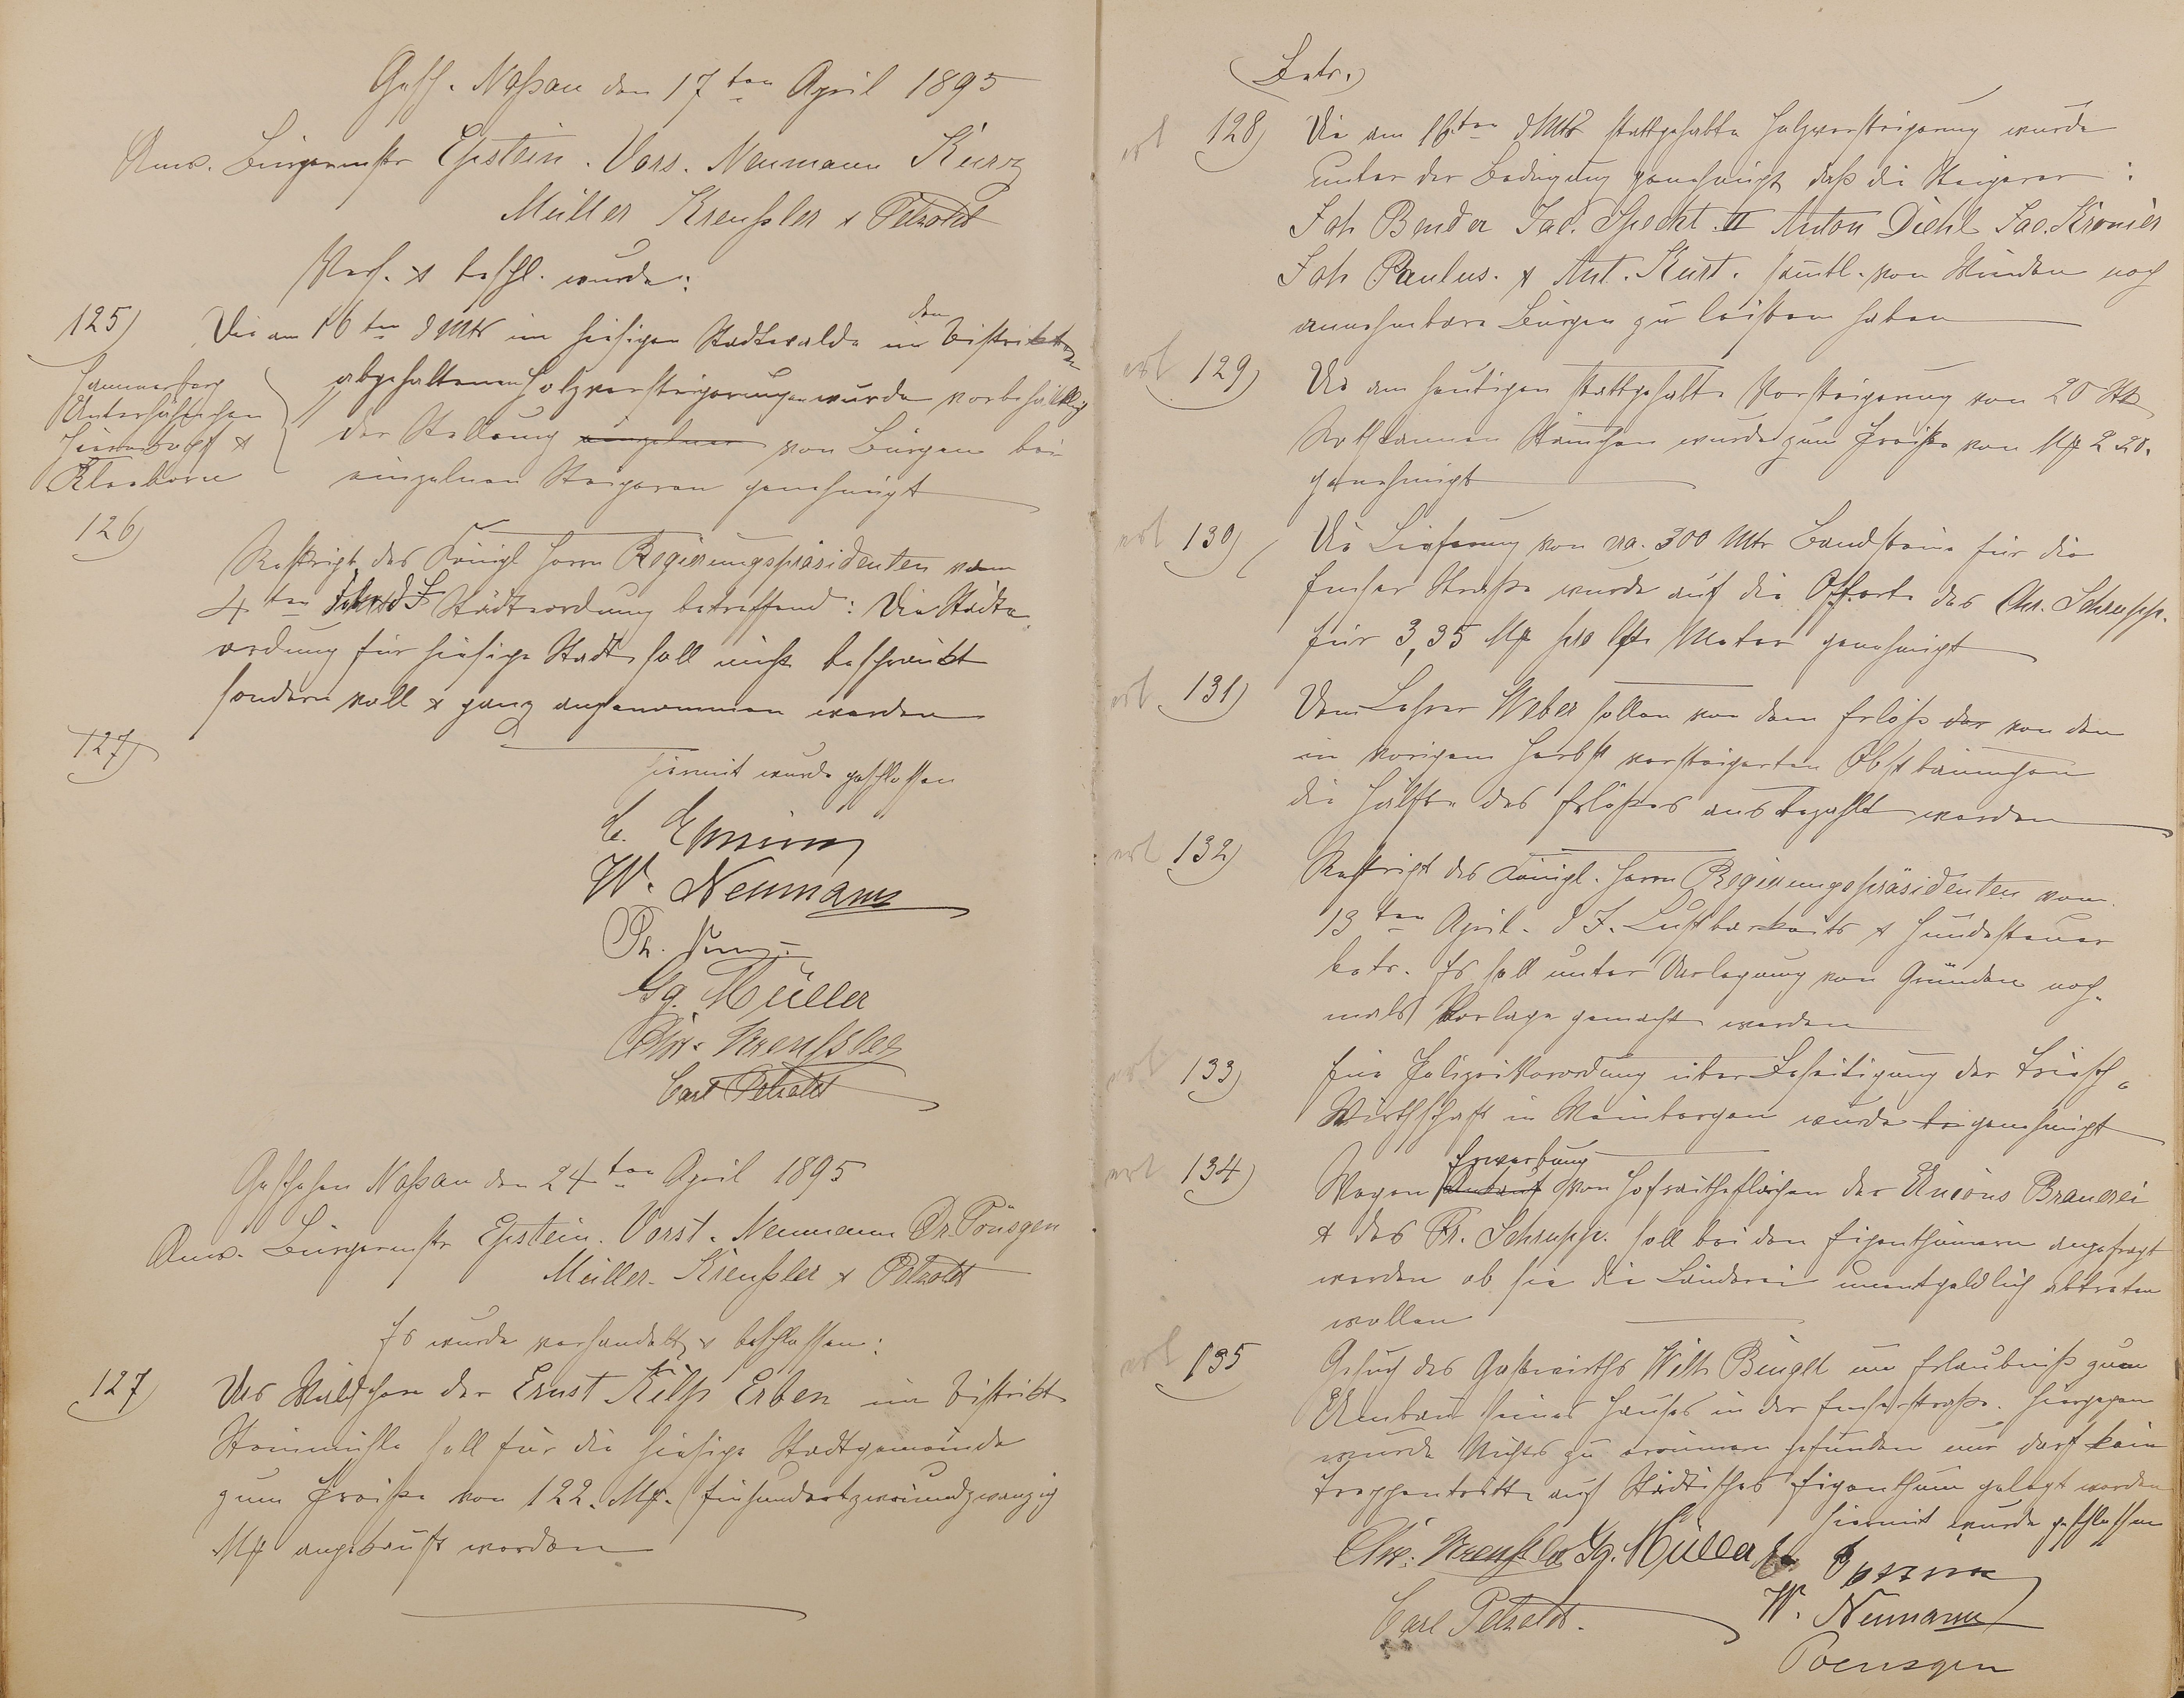 Gesch. Naßau den 17ten April 1895
Anw. Bürgermstr Epstein. Vors. Neumann Kurz
Müller Kreußler & Petzoldt
Verh. & beschl. wurde:
125) Die am 16ten d Mts im hiesigen Stadtwalde in den Distrikten
Hammerberg
Unterhähnchen
&
abgehaltenen Holzversteigerungen wurde vorbehältlich
der Stellung einzelner von Bürgen bei
einzelnen Steigeren genehmigt
126)
Reskript des Königl Herrn Regierungspräsidenten vom
4ten d J Städteordnung betreffend: Die Städte
ordnung für hiesige Stadt soll nicht beschränkt
sondern voll & ganz angenommen werden
127)
Hiermit wurde geschlossen
W. Neumann
Gg. Müller
Chr. Kreußler
Carl Petzoldt
Geschehen Naßau den 24ten April 1895
Anw. Bürgermstr Epstein. Vorst. Neumann Dr. Pönsgen
Müller. Kreußler & Petzoldt
Es wurde verhandelt & beschlossen:
127) Das Wäldchen der Ernst Kilp Erben im Distrikt
Steinmühle soll für die hiesige Stadtgemeinde
zum Preiße von 122. Mk. (Einhundertzweiundzwanzig
Mk angekauft werden
(Betr.)
erl 128) Die am 16ten d Mts stattgehabte Holzversteigerung wurde
unter der Bedingung genehmigt daß die Steigerer:
Joh Bender Jac. Specht. II Anton Diehl Jac. Kronier
Joh Paulus. & Ant. Kurt. sämtl. von Winden noch
annehmbare Bürgen zu leisten haben
erl 129) Die am heutigen stattgehabte Versteigerung von 20 Stk
Rothtannen Stämchen wurde zum Preiße von Mk 2 20.
genehmigt
erl 130) Die Lieferung von ca. 300 Mtr Bandsteine für die
Emser Straße wurde auf die Offerte des Chr. Schrupp.
für 3,35 Mk pro lfd Meter genehmigt
erl 131) Dem Lehrer Weber sollen von dem Erlöß der von den
in vorigem Herbst versteigerten Obstbäumchen
die Hälfte des Erlößes ausbezahlt werden
erl 132) Reskript des Königl. Herrn Regierungspräsidenten vom
13ten April. d J. Lustbarkeits & Hundesteuer
betr. Es soll unter Darlegung von Gründen noch-
mals Vorlage gemacht werden
erl 133) Eine Polizeiverordnung über Beseitigung der Triesch-
Wirthschaft in Weinbergen wurde beigenehmigt
erl 134) Wegen Ankauf Erwerbung von Hofraithflächen der Unions Brauerei
& des Fr. Schrupp. soll bei den Eigenthümern angefragt
werden ob sie die Länderei unentgeldlich abtreten
wollen
erl 135 Gesuch des Gastwirths Wilh. Bingel um Erlaubniß zum
Umbau seines Hauses in der Emserstraße. Hiergegen
wurde Nichts zu erinnern gefunden nur darf kein
Treppentritte auf Städtisches Eigenthum gelegt werden
Hiermit wurde geschlossen
Chr. Kreußler Gg. Müller
W. Neumann
Carl Petzoldt.
Poensgen